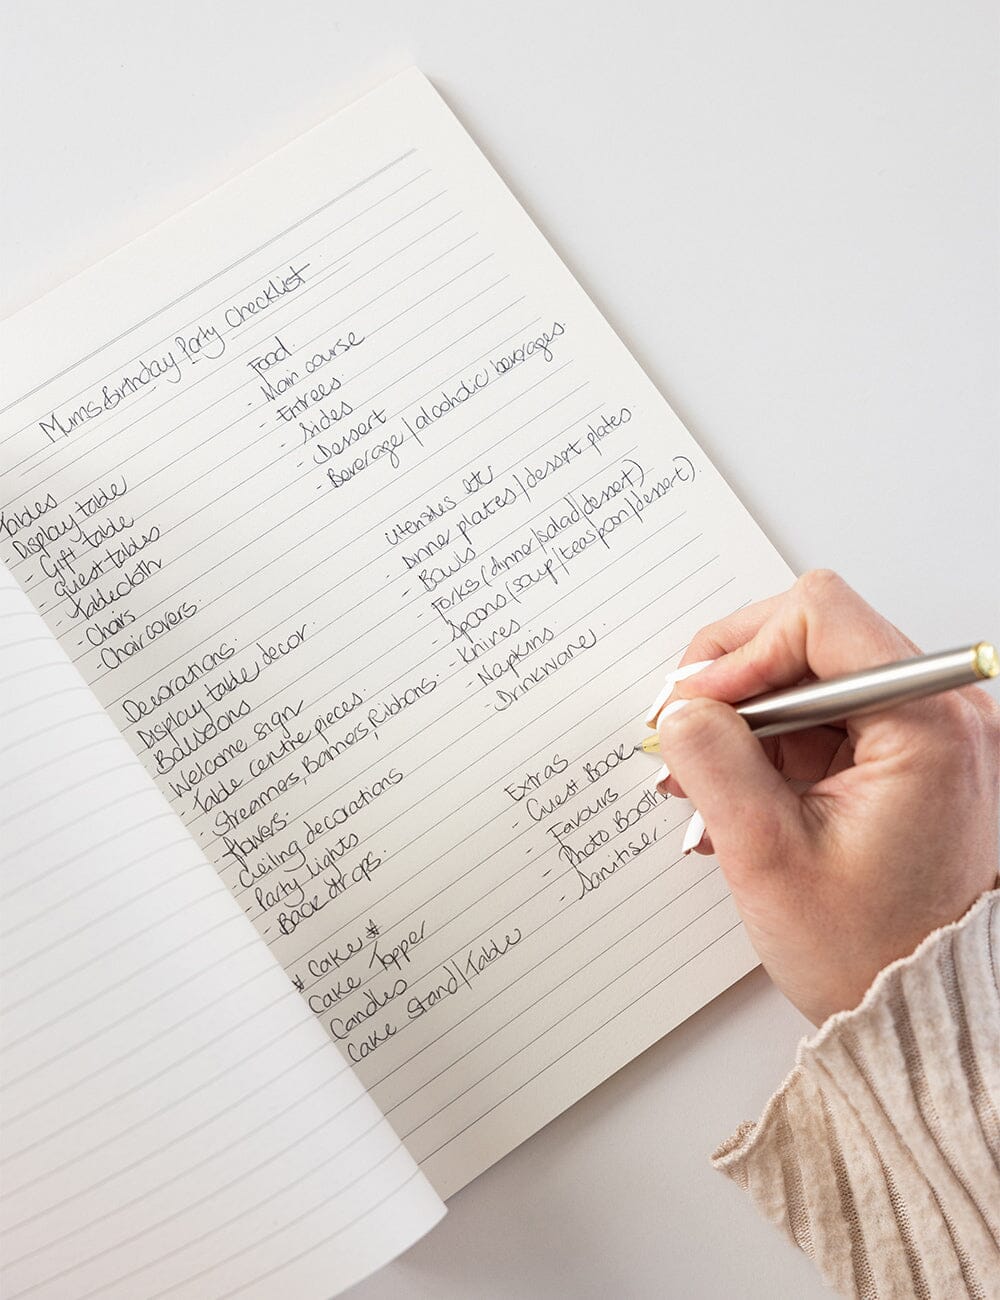 Mums Birthday Party Checklist
Tables
Display table
- Gift table
- Guest tables
- Tablecloth
- Chairs
- Chair covers.
Decorations:
Display table decor.
- Balloons
- Welcome sign
- Table centre pieces.
- Streamers, Banners, Ribbons.
- flowers.
- Ceiling decorations
- Party lights
- Back drops.
* Cake *
Cake Topper
Candles
Cake Stand/Table
Food.
- Main course
- Entrees.
- Sides
- Dessert
- Beverage/alcoholic beverages.
Utensiles etc
- Dinner plates/dessert plates.
- Bowls
- Forks (dinner/salad/dessert)
- Spoons (soup/teaspoon/dessert).
- Knives
- Napkins.
- Drinkware.
Extras
- Guest Book
- Favours
- Photo Booth
- Sanitiser.